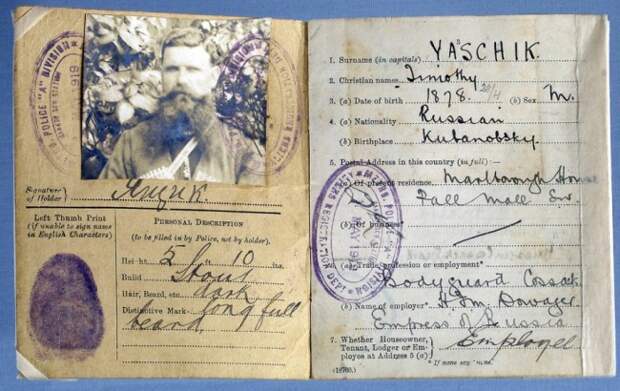 POLICE "A" DIVISION
1919
Signature
of Holder
Ящик.
Left Thumb Print
(if unable to sign name
in English Characters)
PERSONAL DESCRIPTION
(to be filled in by Police, not by holder).
Height 5 ft. 10 ins.
Build Stout
Hair, Beard, etc. dark
Distinctive Mark long full
beard
1. Surname (in capitals) YASCHIK.
2. Christian names Timothy
3. (a) Date of birth 1878. (b) Sex M.
4. (a) Nationality Russian
(b) Birthplace Kubanobsky
5. Postal Address in this country (in full):
(a) Of present residence. Marlborough House
Pall Mall S.W.
(b) Of business*
REGISTRATION DEPT
MAY 19
6. (a) Trade, profession or employment*
Bodyguard Cossack
(b) Name of employer* H.I.M. Dowager
Empress of Russia
7. Whether Householder,
Tenant, Lodger or Em-
ployee at Address 5 (a)
Employee
* If none say "none."